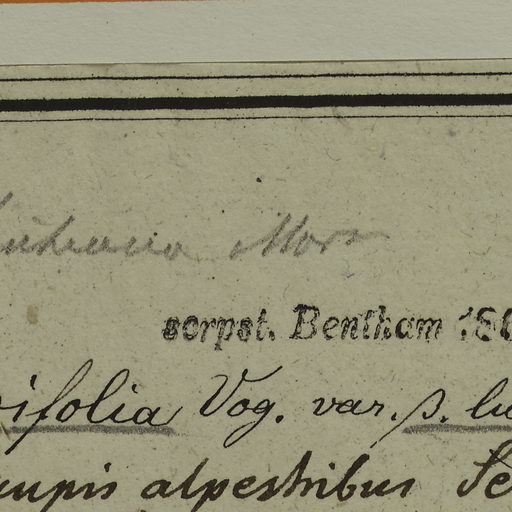 Mor
scrpst. Bentham 18
ifolia Vog. var. β. lu
rupis alpestribus Se